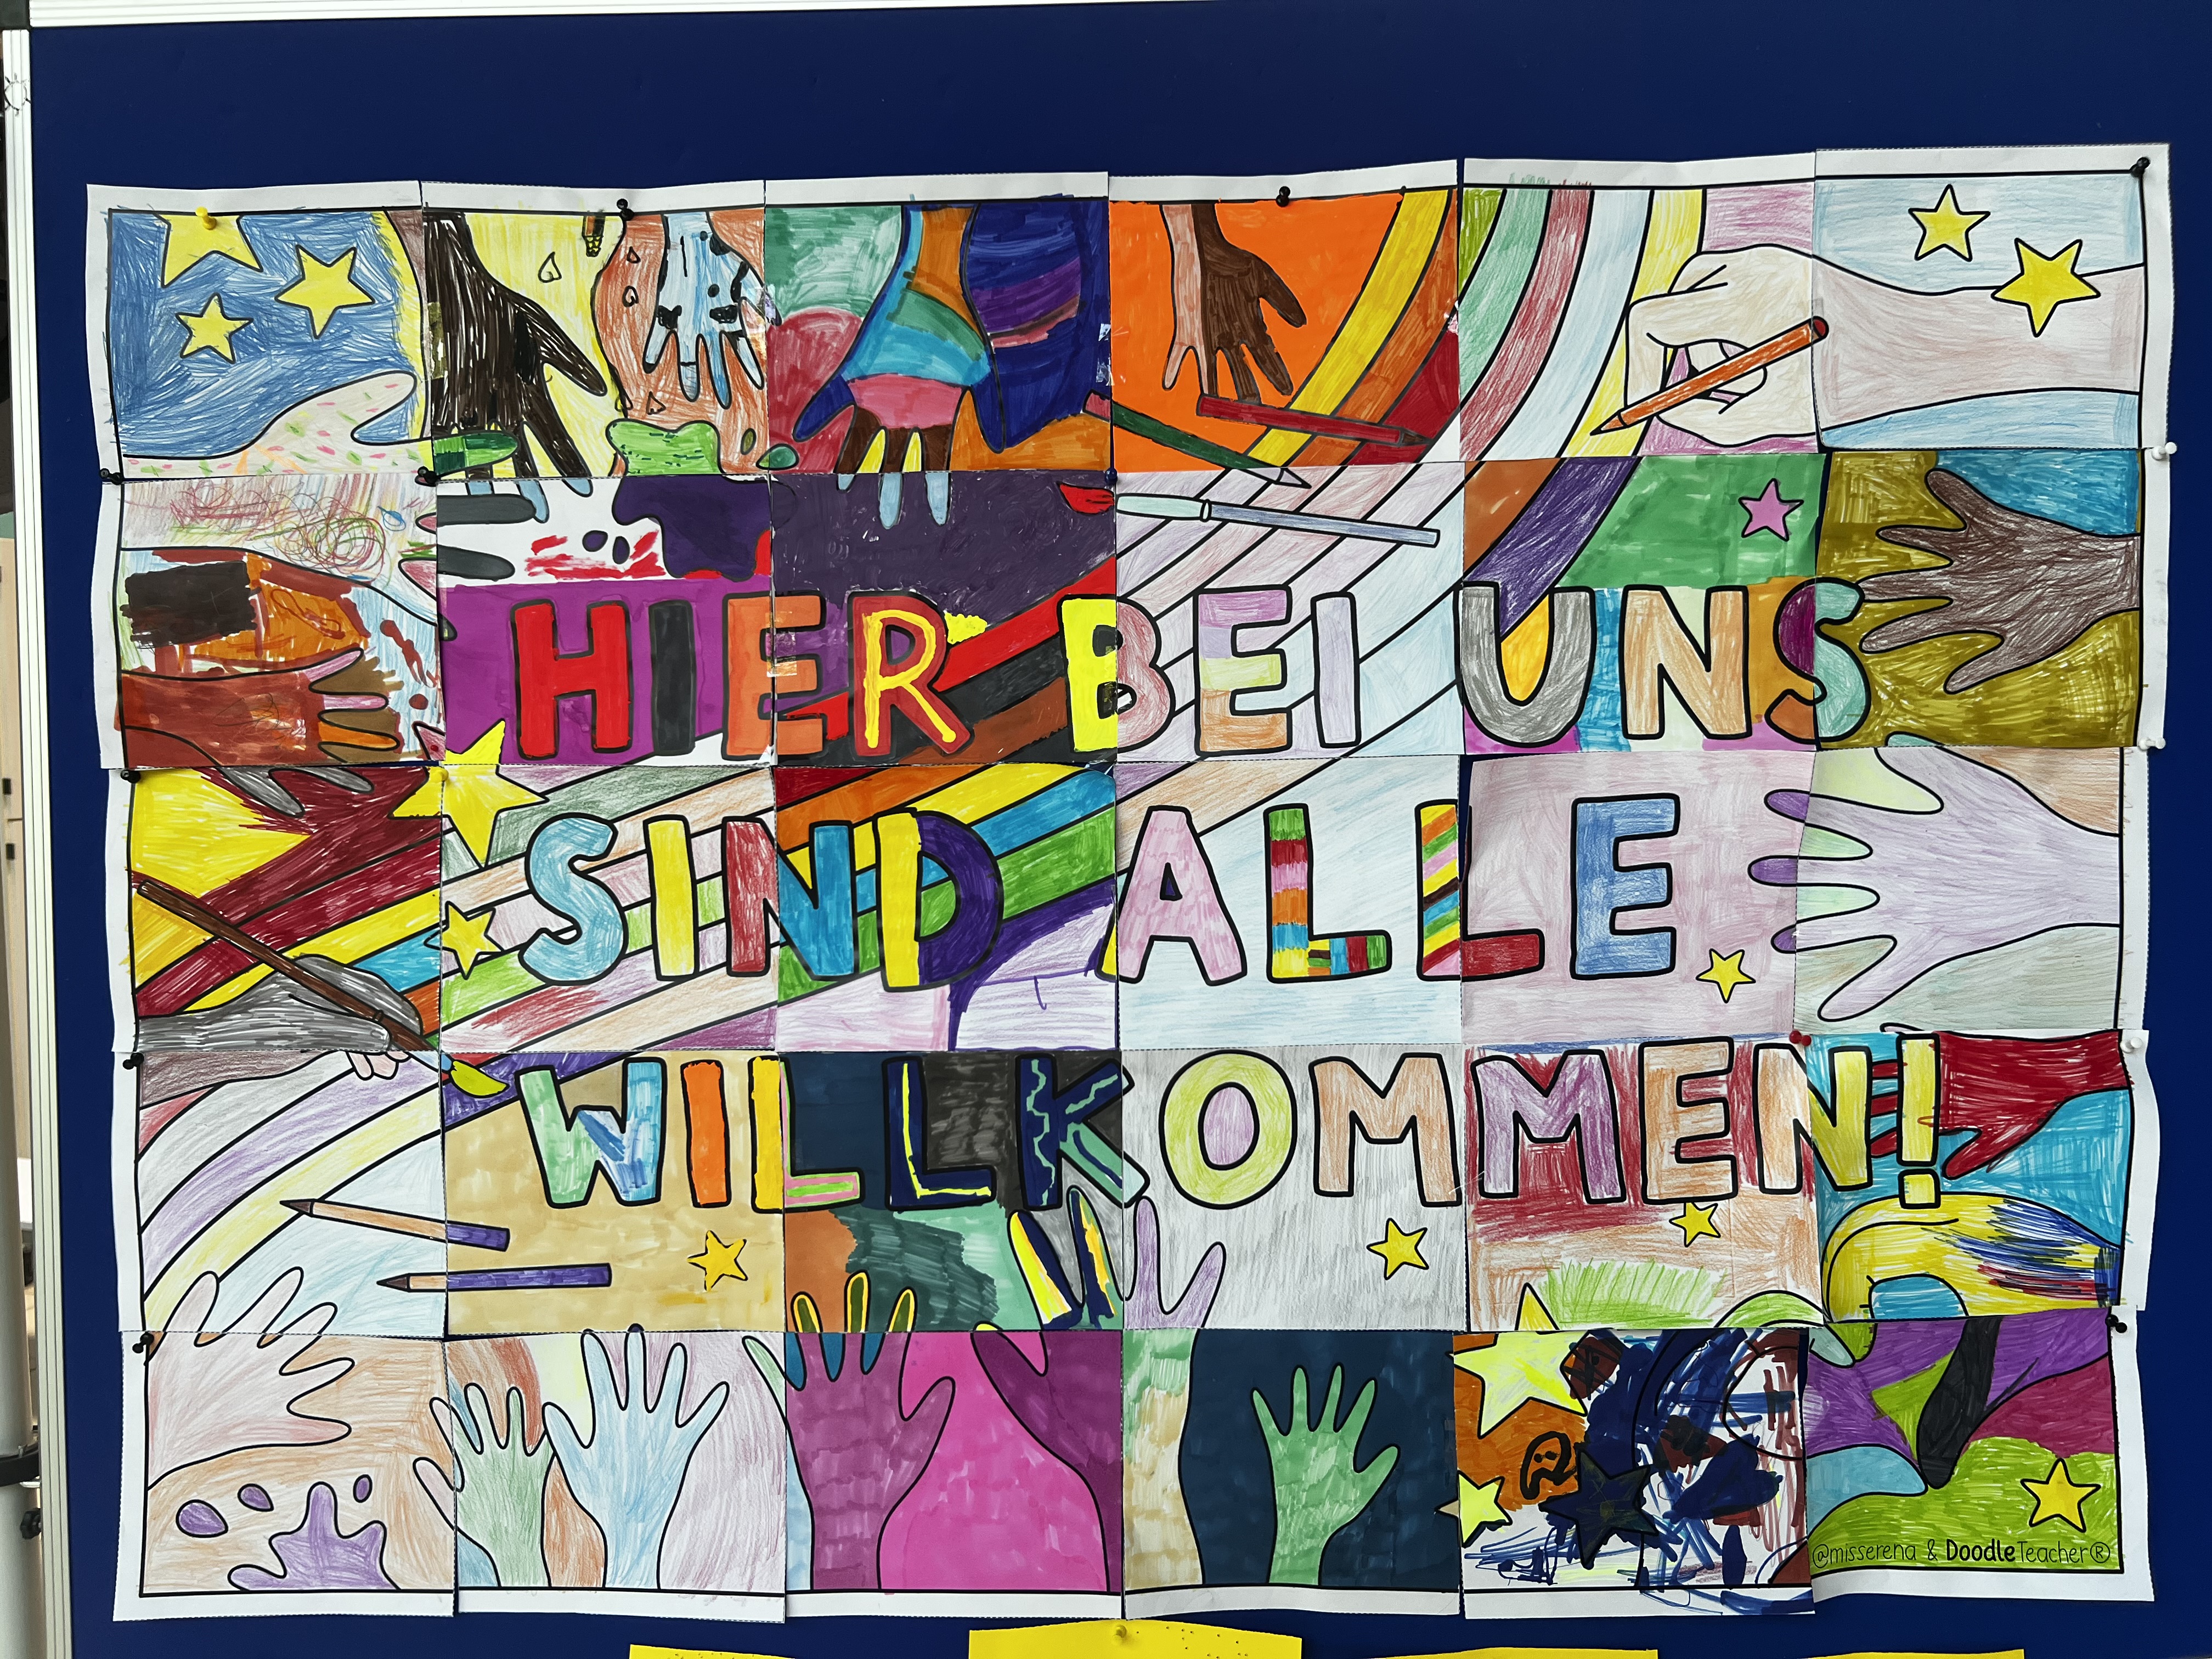 HIER BEI UNS
SIND ALLE
WILLKOMMEN!
@misserena & DoodleTeacher®